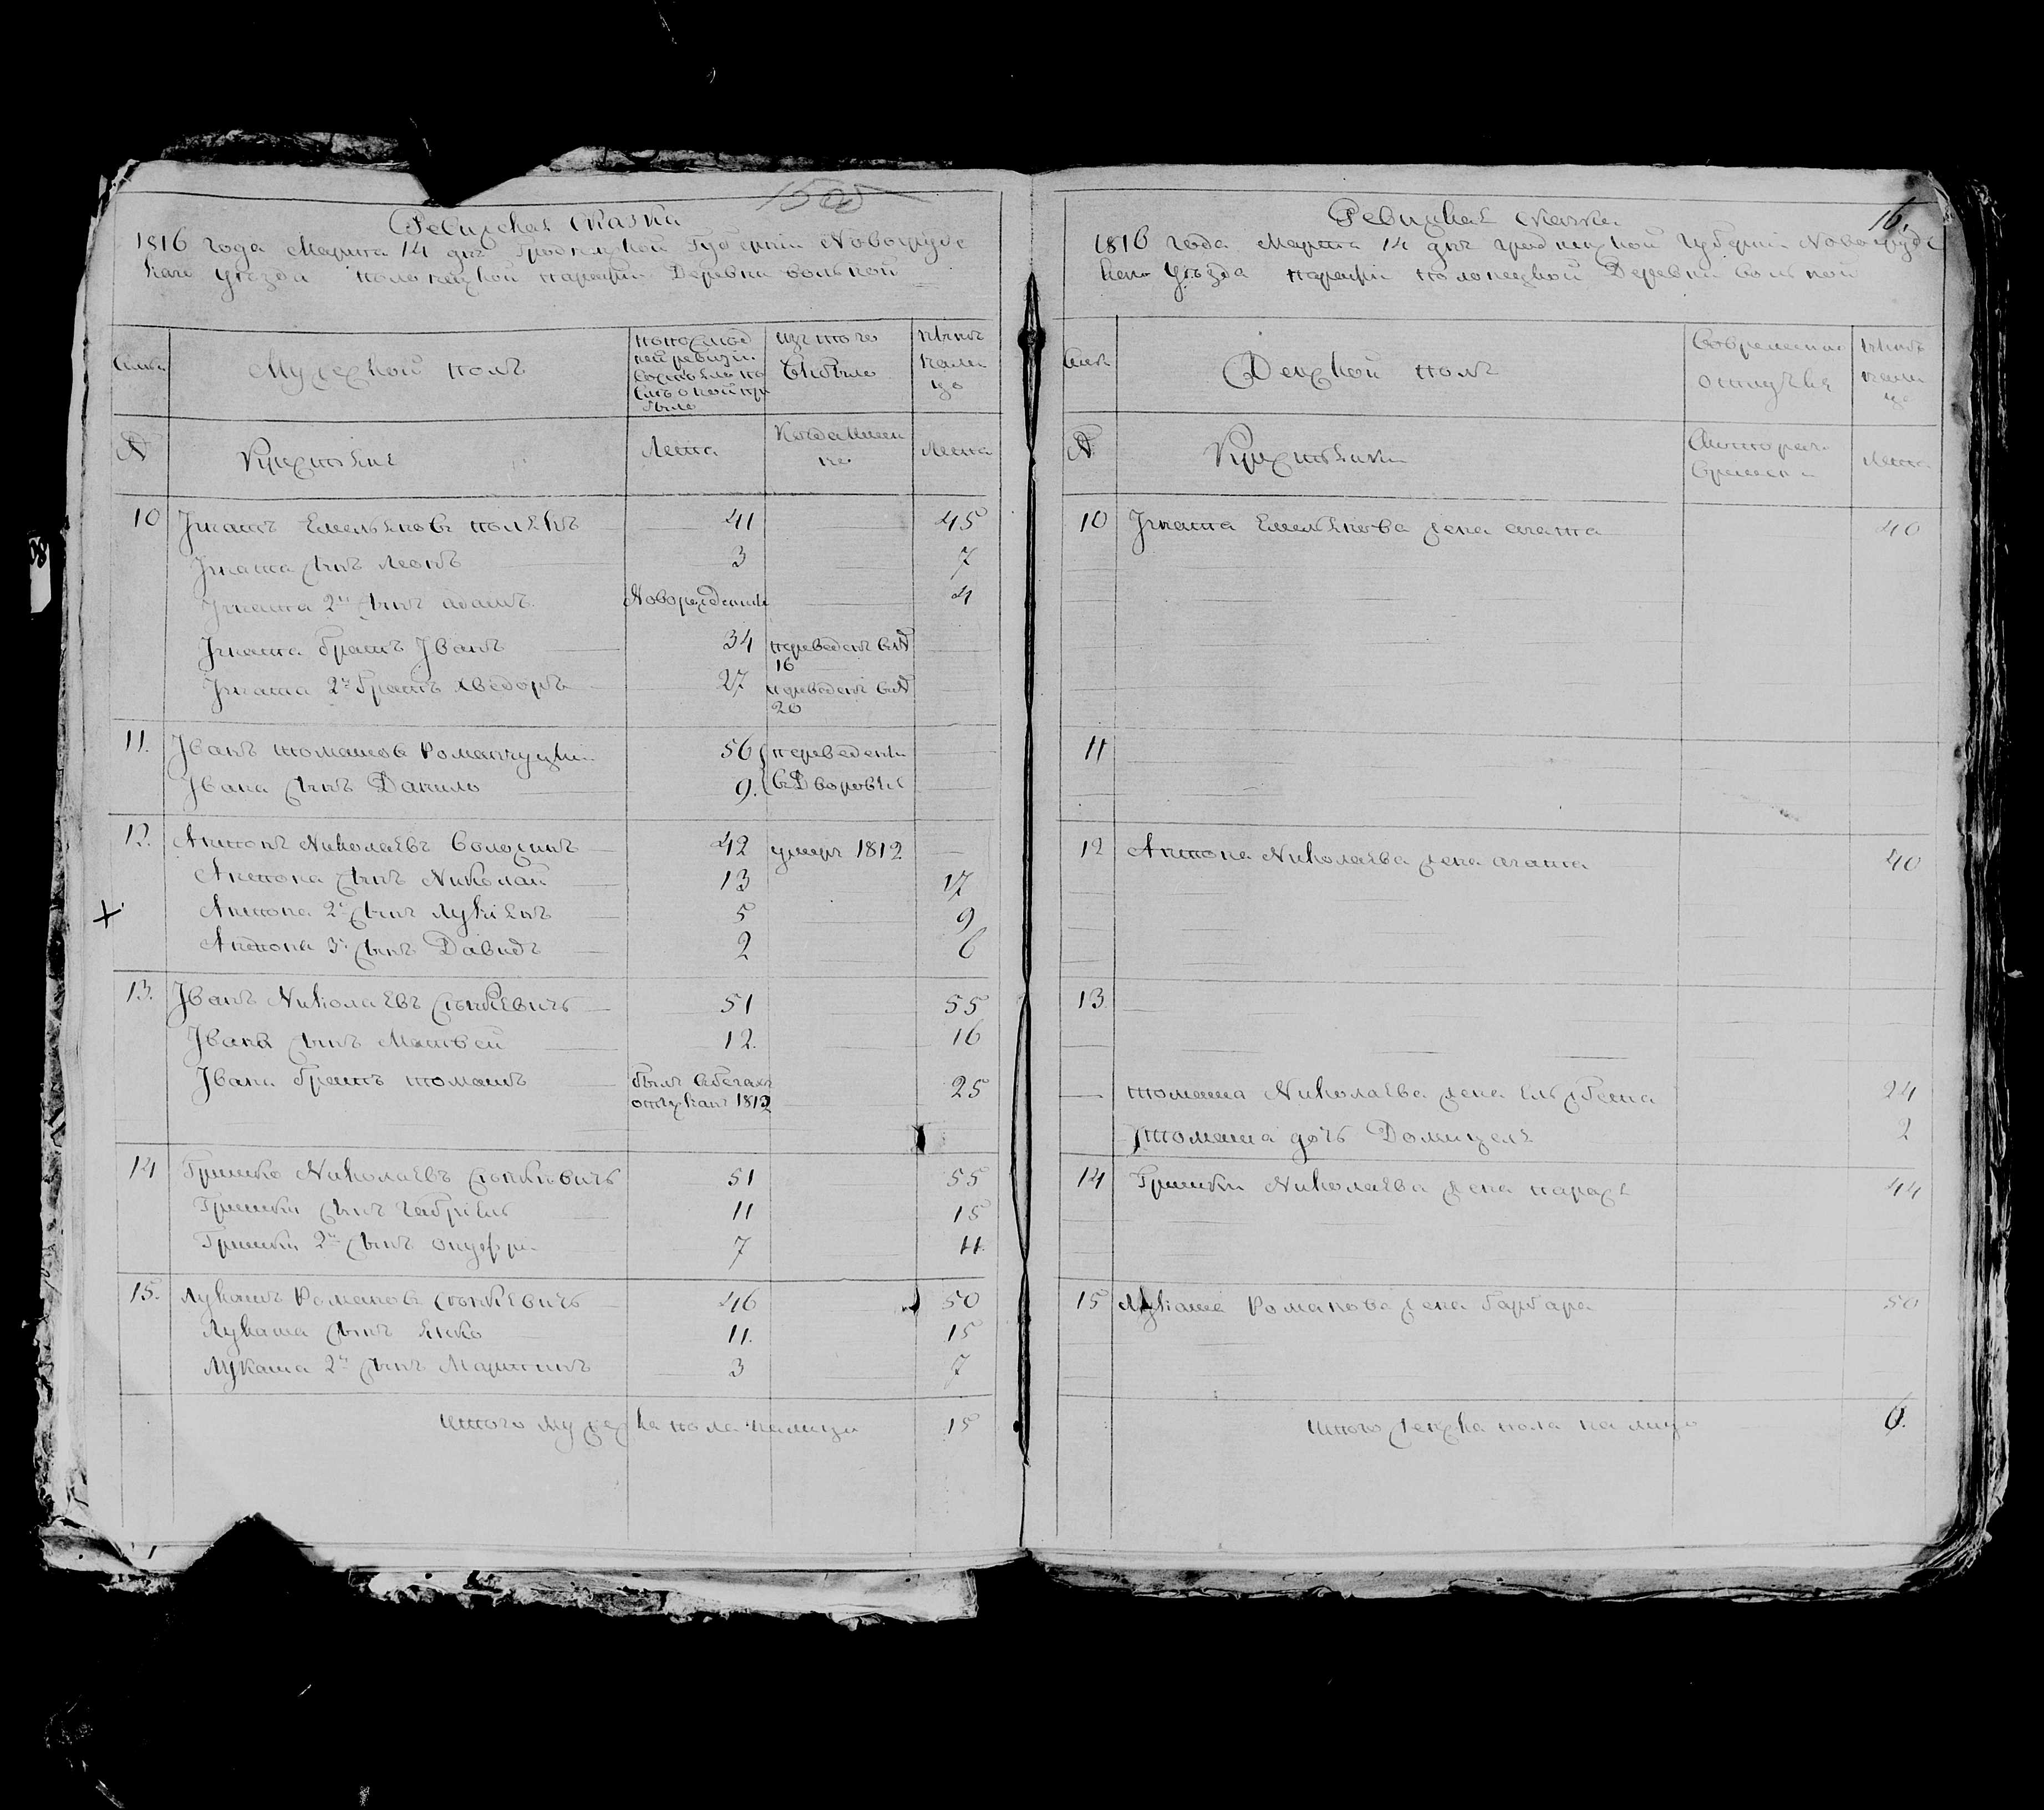 Ревизская сказка
1816 года Марта 14 дня Гродненской Губернии Новогрудс
каго уезда полонецкой парафии Деревни вольной
семьи
Мужеской полъ
попослед
ней ревизiи
состояло по
слѣ оной при
было
изъ того
выбыло
нынѣ
нали
цо
№
Крестьяне
Лета
Когда имян
но
Лета
10 Јгнатъ Емельяновъ полянъ 41 45
Јгната сынъ Леонъ 3 7
Јгната 2й сынъ адамъ Новорожденный 4
Јгната братъ Јванъ 34 переведенъ в №
16
Јгната 2й братъ хведоръ 27 переведенъ в №
20
11. Јванъ томашов Романчуцкий 56 переведены
Јвана сынъ Данило 9. в Дворовыя
12. Антонъ Николаевъ волосинъ 42 умеръ 1812
Антона сынъ Николай 13 17
Антона 2й сынъ Лукiянъ 5 9
Антона 3й сынъ Давидъ 2 6
13. Јванъ Николаевъ 51 55
Јвана сынъ Матвей 12. 16
Јвана братъ томашъ былъ вбегахъ 25
отысканъ 1812
14 Гришко Николаевъ 51 55
Гришки сынъ габрiель 11 15
Гришки 2й сынъ онуфри 7 11.
15. Лукашъ Романовъ 46 50
Лукаша сынъ янко 11. 15
Лукаша 2й сынъ Мартинъ 3 7
итого мужеска пола налицо 15
16.
Ревизкая сказка
1816 года марта 14 дня гродненской губернiи Новогрудс
каго уезда парафiи полонецкой Деревни вольной
семьи
Женской полъ
Вовременной
отлучке
нынѣ
нали
цо
№
Крестьянки
Скотораго
времени
лета
10 Јгната Емельянова жена агата 40
11
12 Антона Николаева жена агата 40
13
томаша Николаева жена ельжбета 24
томаша дочь Домицеля 2
14 Гришки Николаева жена парася 44
15 Лукаша Романова жена барбара 50
итого женска пола налицо 6.